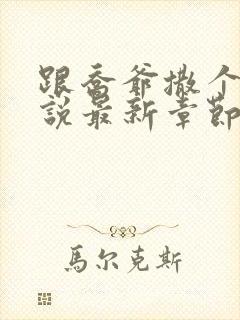 跟喬爺撒个
說最新章節
馬尔克斯